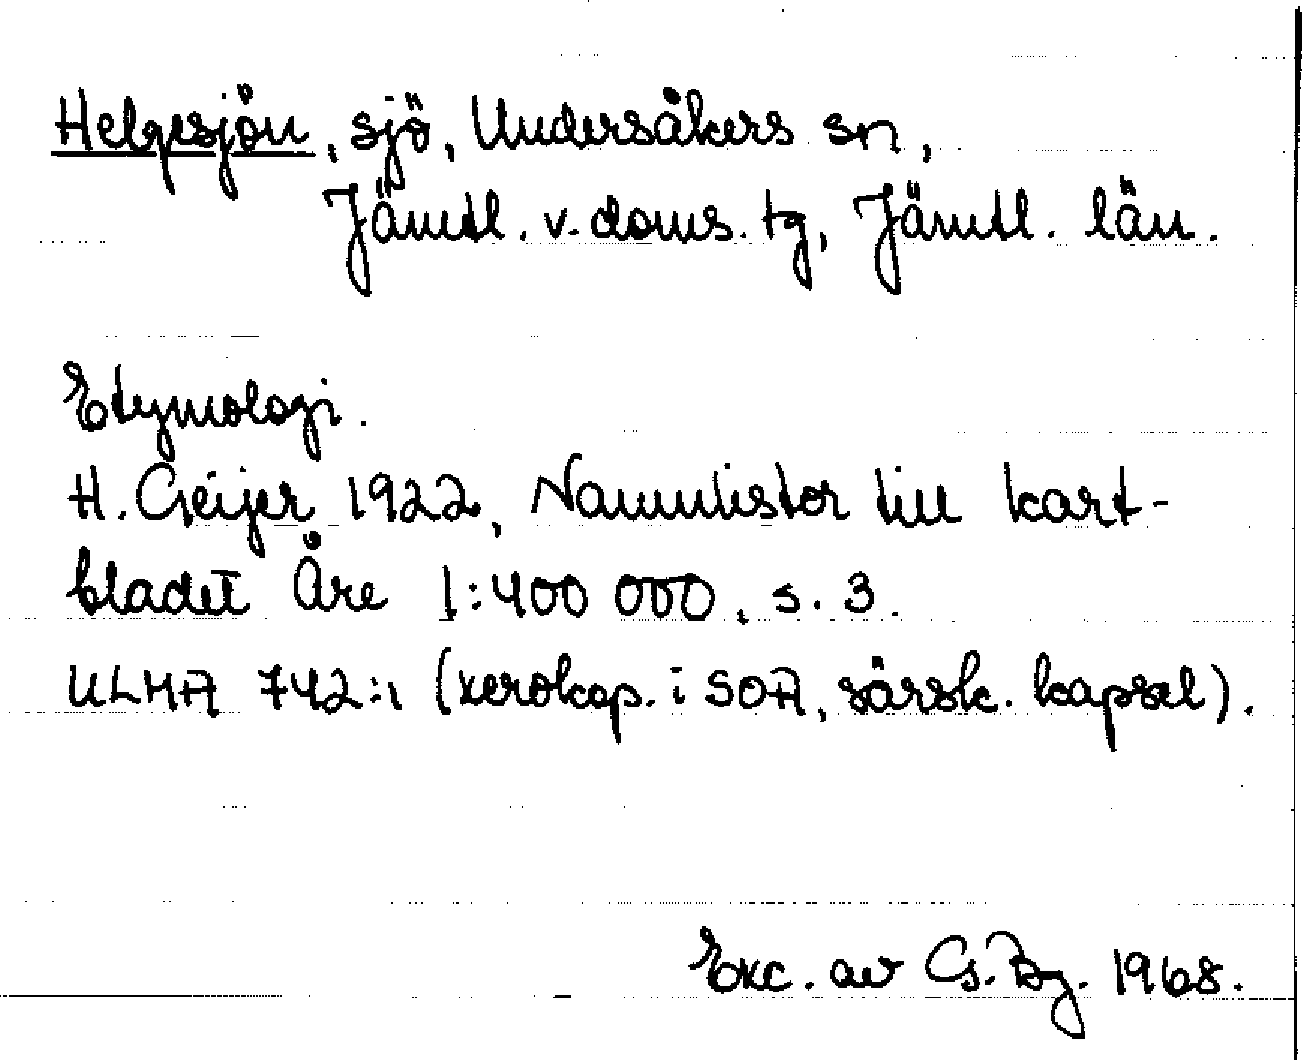 Helgesjön, sjö, Undersåkers sn,
Jämtl. v. doms. tg, Jämtl. län.
Etymologi.
H. Geijer 1922, Namnlistor till kart-
bladet Åre 1:400 000, s. 3.
ULMA 742:1 (xerokop. i SOA, särsk. kapsel).
Exc. av G. Bg. 1968.